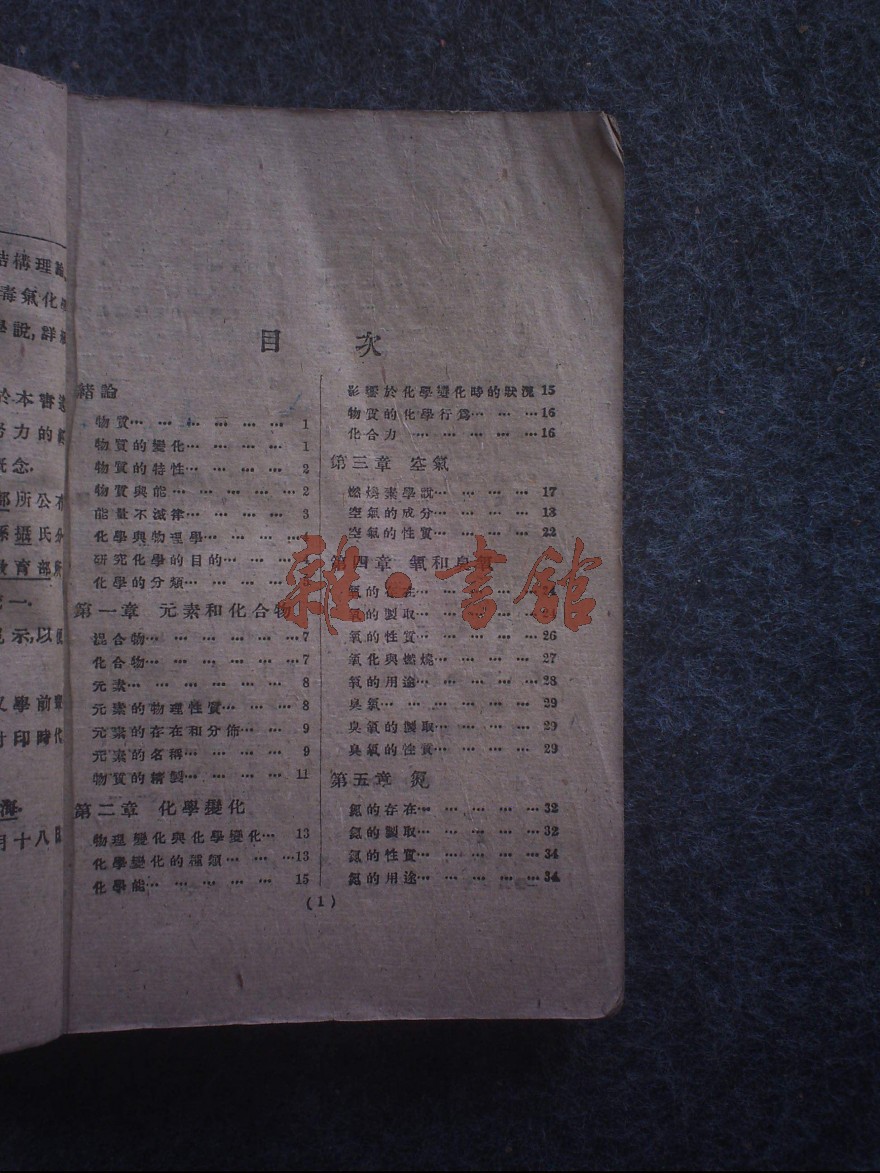 結構理
毒氣化
學說,詳
於本書
努力的
概念.
部所公布
係攝氏
教育部所
示,以便
學前
印時代
海.
月十八日
目 次
緒論
物質… … … … … … 1
物質的變化… … … … 1
物質的特性… … … … 2
物質與能… … … … … 2
能量不滅律… … … … 3
化學與物理學… … …
研究化學的目的… …
化學的分類… … …
第一章 元素和化合物
混合物… … … … … …7
化合物… … … … … …7
元素… … … … … … 8
元素的物理性質… … … 8
元素的存在和分佈… … 9
元素的名稱… … … … 9
物質的精製… … … … 11
第二章 化學變化
物理變化與化學變化… 13
化學變化的種類… … …13
化學能… … … … … 15
影響於化學變化時的狀況 15
物質的化學行爲… … … 16
化合力 … … … … …16
第三章 空氣
燃燒素學說… … … … 17
空氣的成分… … … … 18
空氣的性質… … … … 22
第四章 氧和臭氧
氧的存在… … … … … 24
氧的製取… … … …
氧的性質… … … … … 26
氧化與燃燒… … … … 27
氧的用途… … … … …28
臭氧… … … … … … 29
臭氧的製取… … … … 29
臭氧的性質… … … … 29
第五章 氮
氮的存在… … … … … 32
氮的製取… … … … …32
氮的性質… … … … … 34
氮的用途… … … … …34
(1)
雜·書館